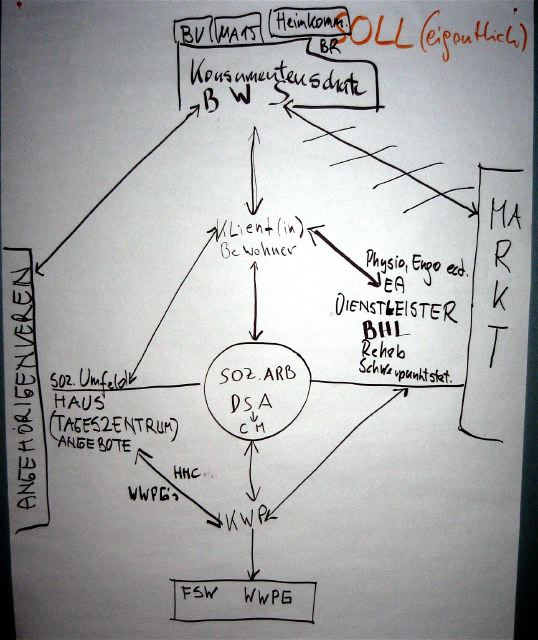 SOLL (eigentlich)
BV MA15 Heimkomm.
BR
Konsumentenschutz
B W S
MARKT
Klient(in)
Bewohner
Physio, Ergo ect.
EA
DIENSTLEISTER
BHL
Rehab
Schwerpunktstat.
ANGEHÖRIGENVEREIN
SOZ. ARB
DSA
CM
SOZ. Umfeld
HAUS
(TAGESZENTRUM)
ANGEBOTE
HHC
WWPG's
KWPL
FSW WWPG